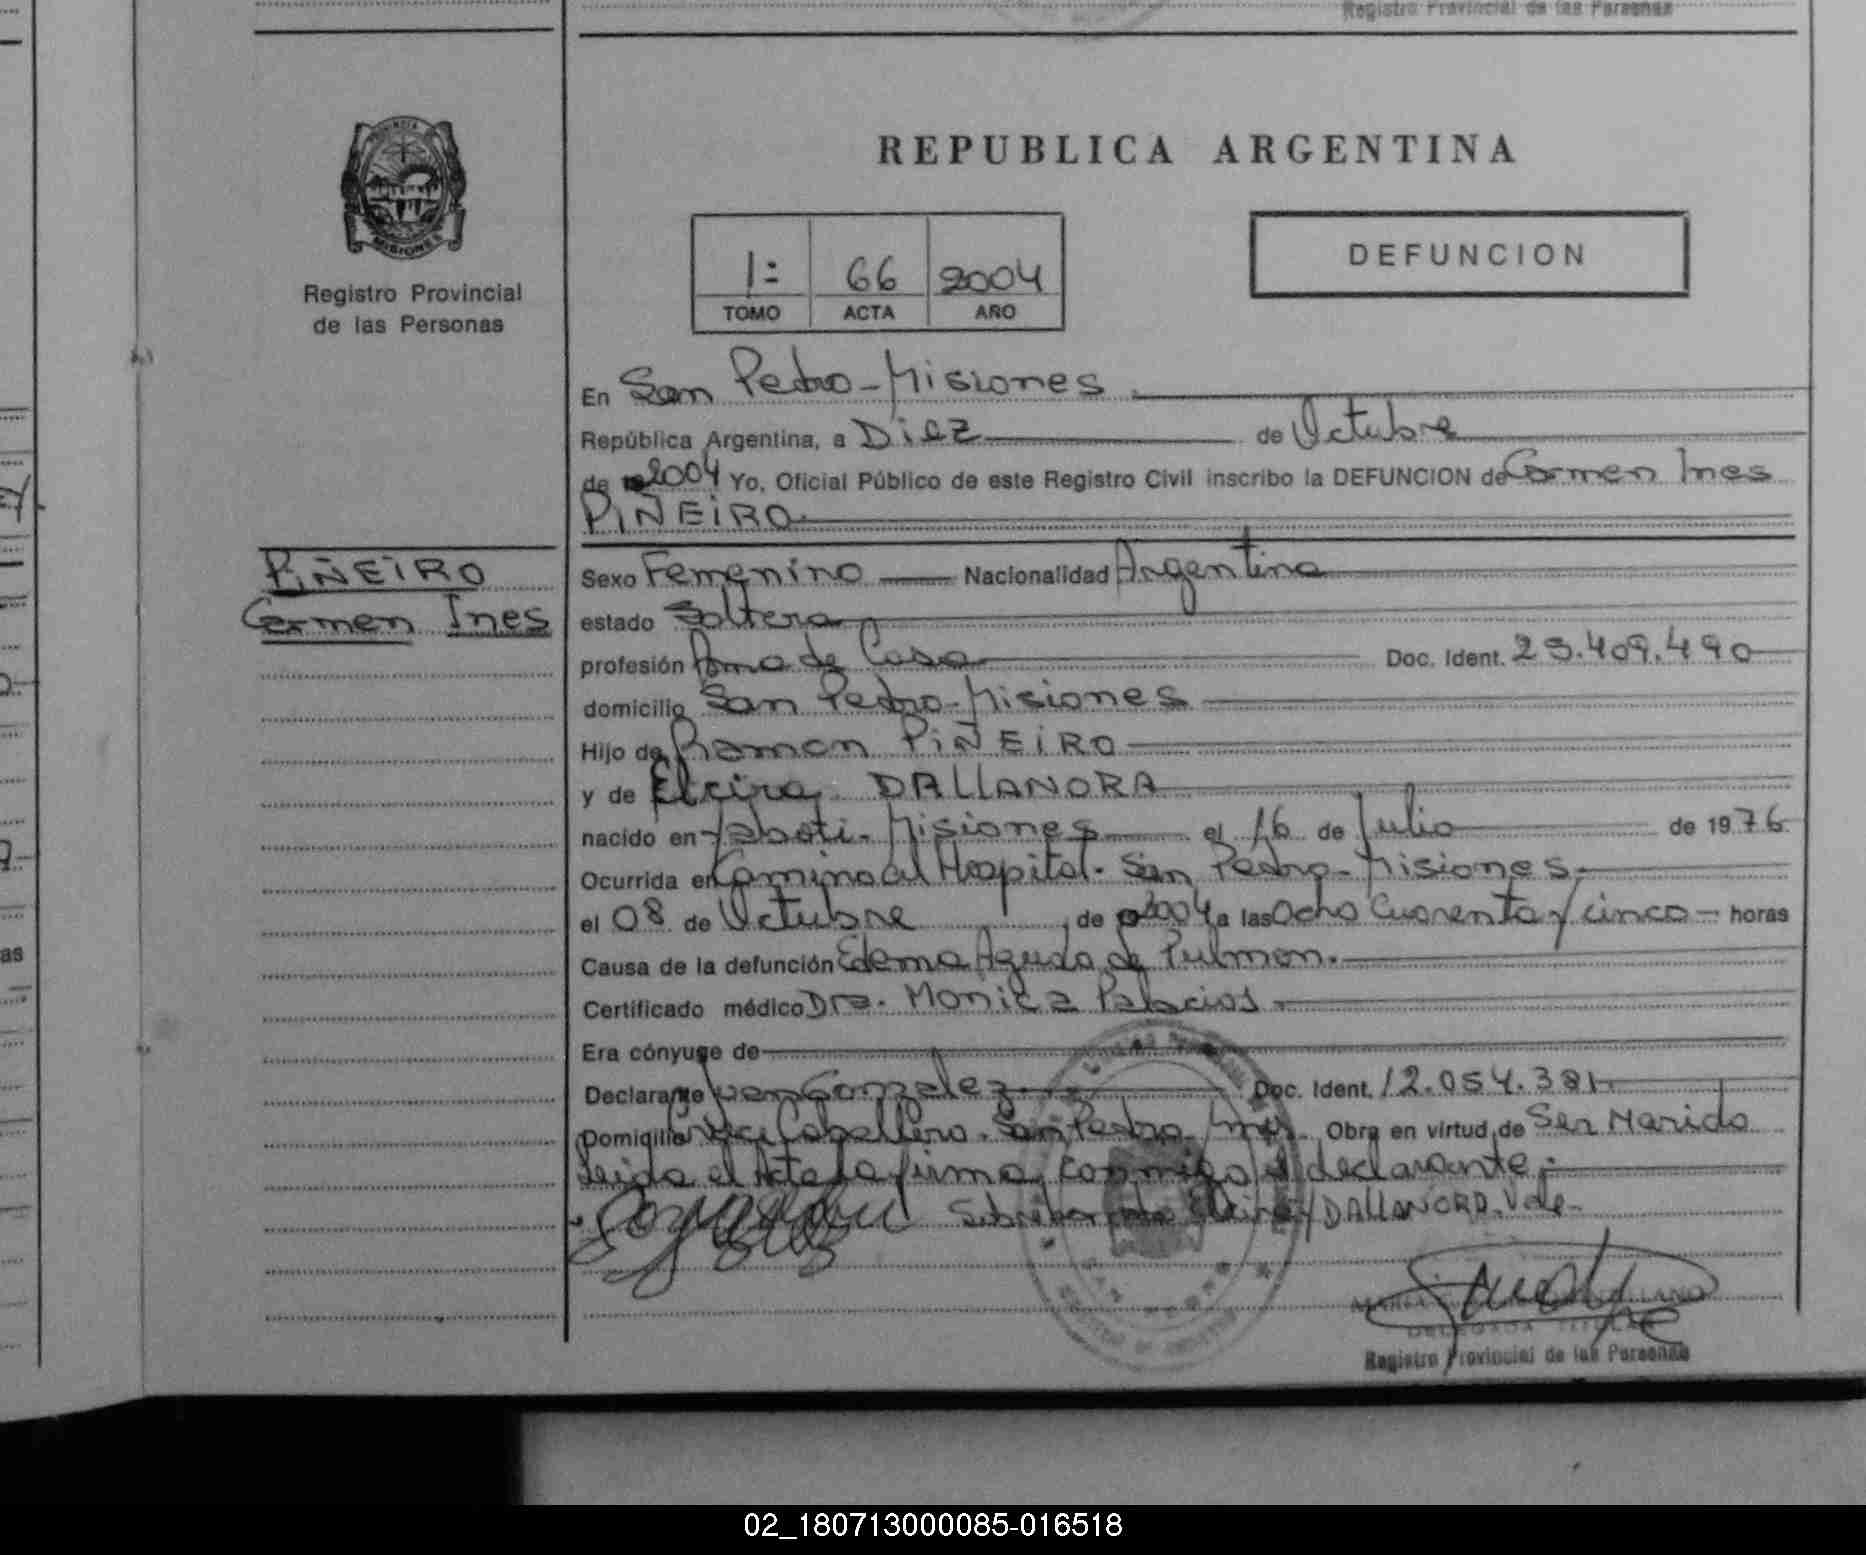 Registro Provincial de las Personas
PROVINCIA
MISIONES
Registro Provincial
de las Personas
REPUBLICA ARGENTINA
1= 66 2004
TOMO ACTA AÑO
DEFUNCION
En San Pedro - Misiones
República Argentina, a Diez de Octubre
de 2004 Yo, Oficial Público de este Registro Civil inscribo la DEFUNCION de Carmen Ines
PIÑEIRO
PIÑEIRO
Carmen Ines
Sexo Femenino Nacionalidad Argentina
estado Soltera
profesión Ama de Casa Doc. Ident. 25.409.490
domicilio San Pedro - Misiones
Hijo de Ramon PIÑEIRO
y de Elcira DALLANORA
nacido en Yaboti - Misiones el 16 de Julio de 1976
Ocurrida en Camino al Hospital - San Pedro - Misiones.
el 08 de Octubre de 2004 a las Ocho Cuarenta y cinco horas
Causa de la defunción Edema Agudo de Pulmon.
Certificado médico Dra. Monica Palacios
Era cónyuge de
Declarante Juan Gonzalez Doc. Ident. 12.054.381
Domicilio Caballero - San Pedro - Mnes Obra en virtud de Ser Marido
Leida el Acta la firma conmigo el declarante.
Elcira y DALLANORA. Vale
DELEGADA TITULAR
Registro Provincial de las Personas
02_180713000085-016518